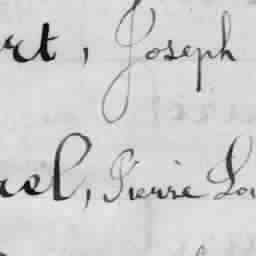 rt, Joseph
el, Pierre Lou